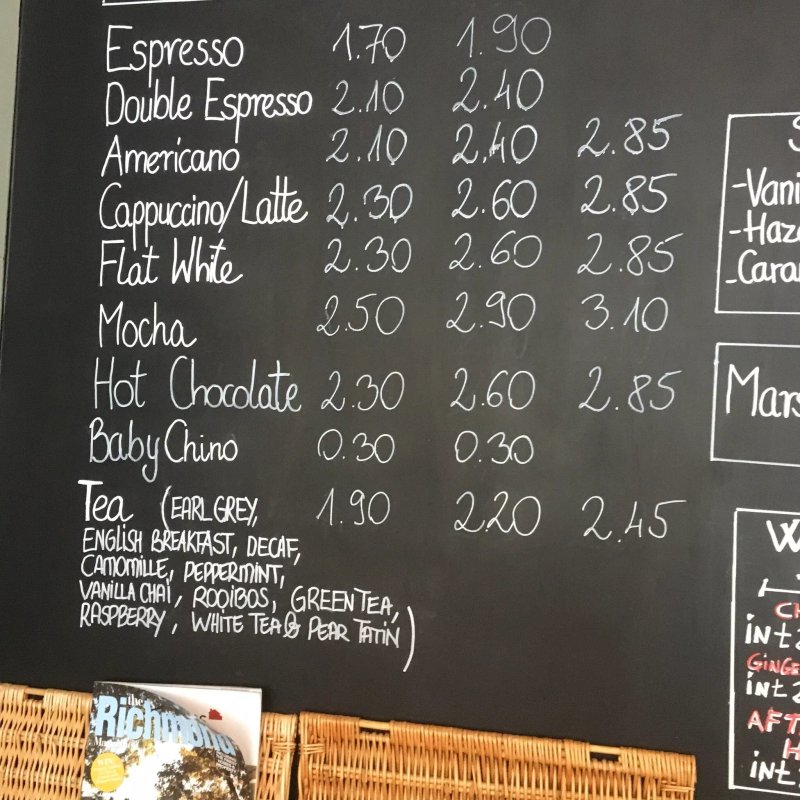 Espresso 1.70 1.90
Double Espresso 2.10 2.40
Americano 2.10 2.40 2.85
Cappuccino/Latte 2.30 2.60 2.85
Flat White 2.30 2.60 2.85
Mocha 2.50 2.90 3.10
Hot Chocolate 2.30 2.60 2.85
Baby Chino 0.30 0.30
Tea (EARL GREY, 1.90 2.20 2.45
ENGLISH BREAKFAST, DECAF,
CAMOMILLE, PEPPERMINT,
VANILLA CHAI, ROOIBOS, GREEN TEA,
RASPBERRY, WHITE TEA & PEAR TATIN)
S
-Vani
-Haze
-Caran
Mars
W
CH
int 2
GINGE
int 2
AFT
H
int 2
the
Richmond
Magazine
WIN